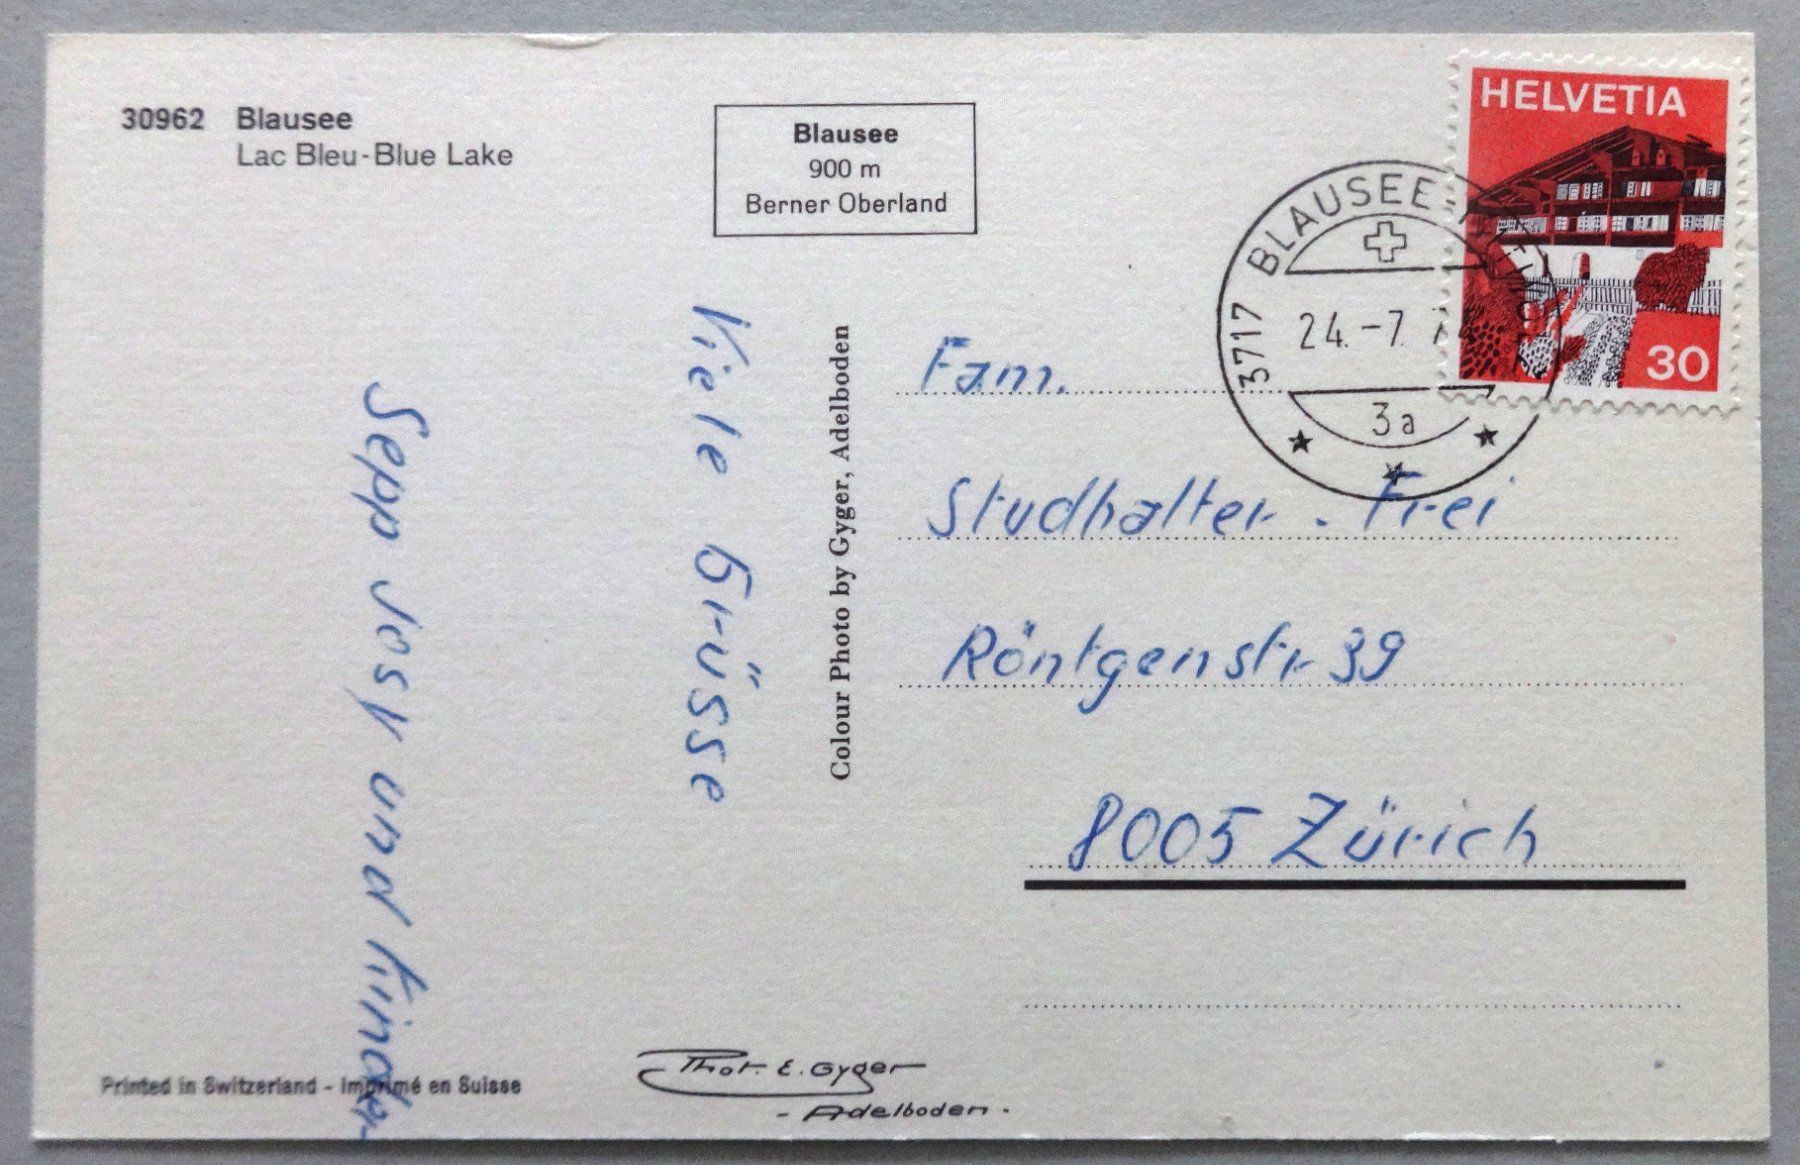 30962 Blausee
Lac Bleu-Blue Lake
Blausee
900 m
Berner Oberland
HELVETIA
30
3717 BLAUSEE-
24.-7.
3a
Viele Grüsse
Sepp Josy und Kinder
Colour Photo by Gyger, Adelboden
Fam.
Studhalter - Frei
Röntgenstr 39
8005 Zürich
Printed in Switzerland - Imprimé en Suisse
Phot. E. Gyger
- Adelboden -